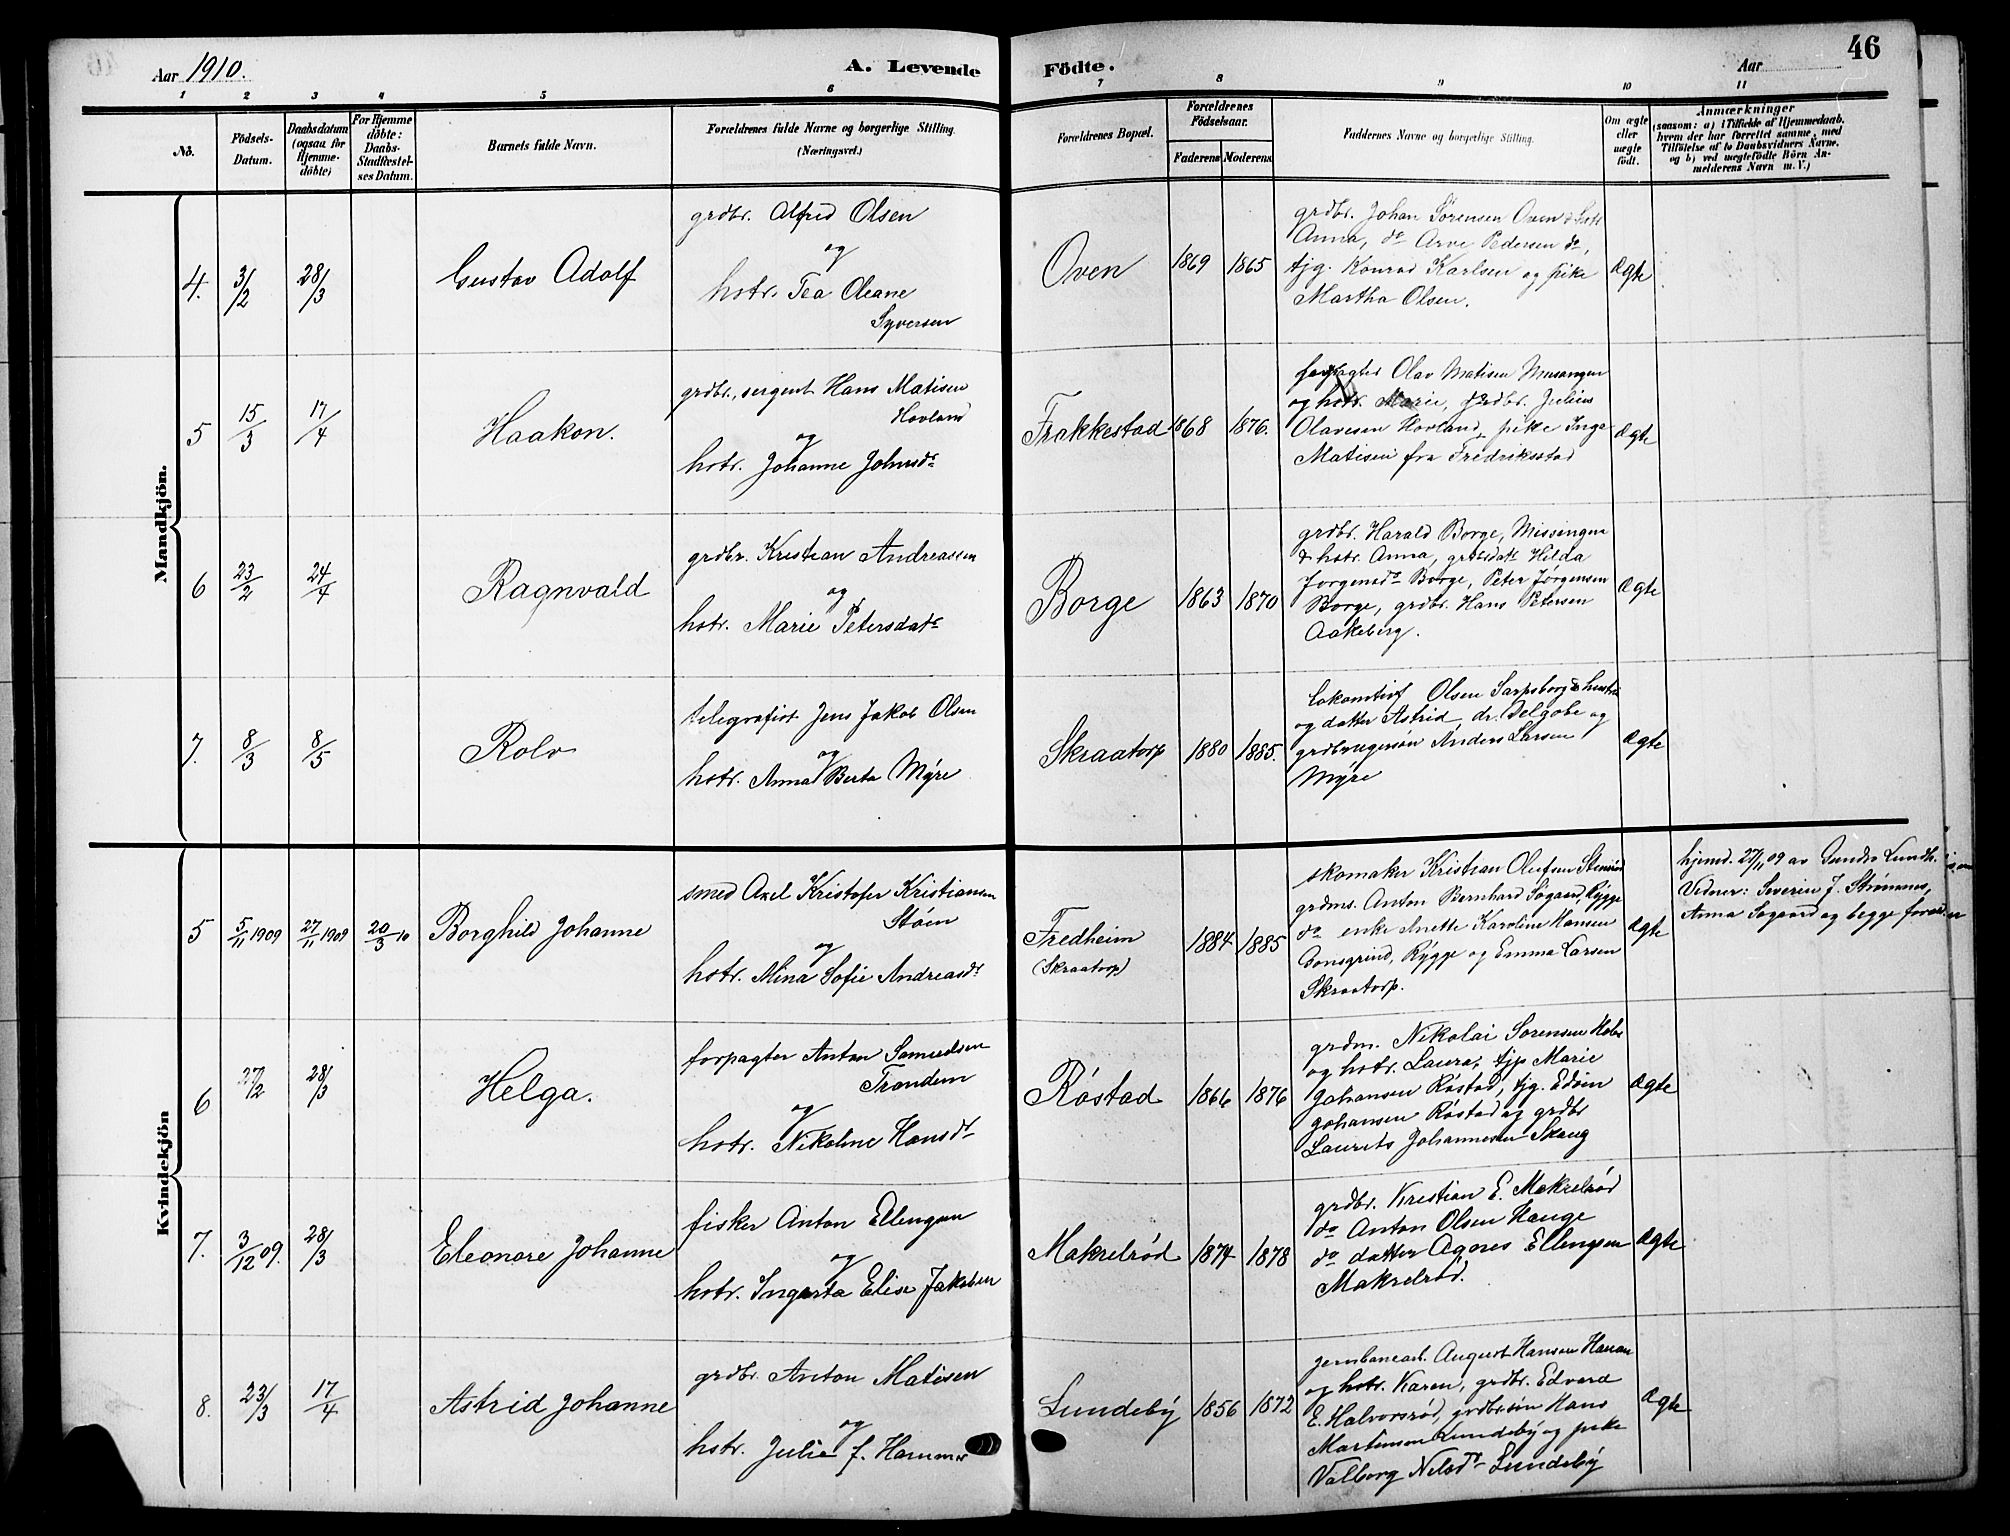 46
Aar 1910.
A. Levende Födte.
Aar
1 2 3 4 5 6 7 8 9 10 11
No.
Födsels-
Datum.
Daabsdatum
(ogsaa for
Hjemme-
döbte)
For Hjemme
döbte:
Daabs-
Stadfæstel-
ses Datum.
Barnets fulde Navn.
Forældrenes fulde Navne og borgerlige Stilling.
(Næringsvei.)
Forældrenes Bopæl.
Forældrenes
Födselsaar.
Faderens Moderens
Faddernes Navne og borgerlige Stilling.
Om ægte
eller
uægte
födt.
Anmærkninger
(saasom: a) i Tilfælde af Hjemmedaab,
hvem der har forrettet samme, med
Tilföielse af to Daabsvidners Navne,
og b) ved uægtefödte Börn An-
melderens Navn m. V.)
Mandkjön.
4. 3/2 28/3
Gustav Adolf
grdbr. Alfred Olsen
og
hstr. Tea Oleane
Syversen
Oven
1869 1865
grdbr. Johan Sørensen Oven &
Anna, do Arve Pedersen do,
tjg. Konrad Karlsen og pike
Martha Olsen.
Ægte
5 15/3 17/4
Haakon.
grdbr., sergent Hans Matisen
Hovland
og
hstr. Johanne Johnsdr
Frakkestad
1868 1876.
forpagter Olav Matisen
og hstr. Marie, grdbr. Julius
Olavesen Hovland, pike Inga
Matisen fra Fredriksstad
Ægte
6 23/2 24/4
Ragnvald
grdbr. Kristian Andreassen
og
hstr. Marie Petersdatr
Borge
1863 1870
grdbr. Harald Borge, Missingen
& hstr. Anna, grbrsdatr Hilda
Jørgensdr Borge, Peter Jørgensen
Borge, grdbr. Hans Petersen
Aakeberg.
Ægte
7. 8/3 8/5
Rolv
telegrafist Jens Jakob Olsen
og
hstr. Anna Berta Mýre
Skraatorp
1880 1885.
Lokomtivf Olsen Sarpsborg & hustru
og datter Astrid, dr. Delgobe og
grdbrugersøn Anders Larsen
Mýre
Ægte
Kvindekjön
5 5/11 1909 27/11 1909 20/3 10
Borghild Johanne
smed Axel Kristofer Kristiansen
Støen
og
hstr. Mina Sofie Andreasdr
Fredheim
(Skraatorp)
1884 1885
skomaker Kristian Olufsen
grdms. Anton Bernhard Søgaard, Rýgge
do enke Anette Karoline Hansen
Gonsgrind, Rýgge og Emma Larsen
Skraatorp.
Ægte
hjemd. 27/11 09 av Gundro Lundh.
Vidner: Severin J. Strømnes,
Anna Søgaard og begge
6 27/2 28/3
Helga.
forpagter Anton Samuelsen
Trondem
og
hstr. Nikoline Hansdr
Róstad
1866 1876
grdm. Nikolai Sørensen
og hstr. Laura, tjp Marie
Johansen Róstad, tjg. Edvin
Johansen Róstad og grdbr
Laurits Johannesen Skaug
Ægte
7. 3/12 09. 28/3
Eleonore Johanne
fisker Anton Ellengsen
og
hstr. Ingarta Elise Jakobsen
Makrelrød
1874 1878
grdbr. Kristian E. Makrelrød
do Anton Olsen Hauge
do datter Agnes Ellingsen
Makrelrød.
Ægte
8. 23/3 17/4
Astrid Johanne
grdbr. Anton Matisen
og
hstr. Julie f. Hammer
Lundebý
1856 1872
jernbanearb. August Hansen
og hstr. Karen, grdbr. Edvard
E. Halvorsrød, grdbrsøn Hans
Martinsen Lundebý og pike
Valborg Nilsdr Lundebý
Ægte